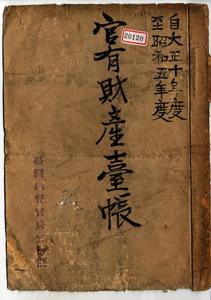 自大正十年度
至昭和五年度
20120
官有財産臺帳